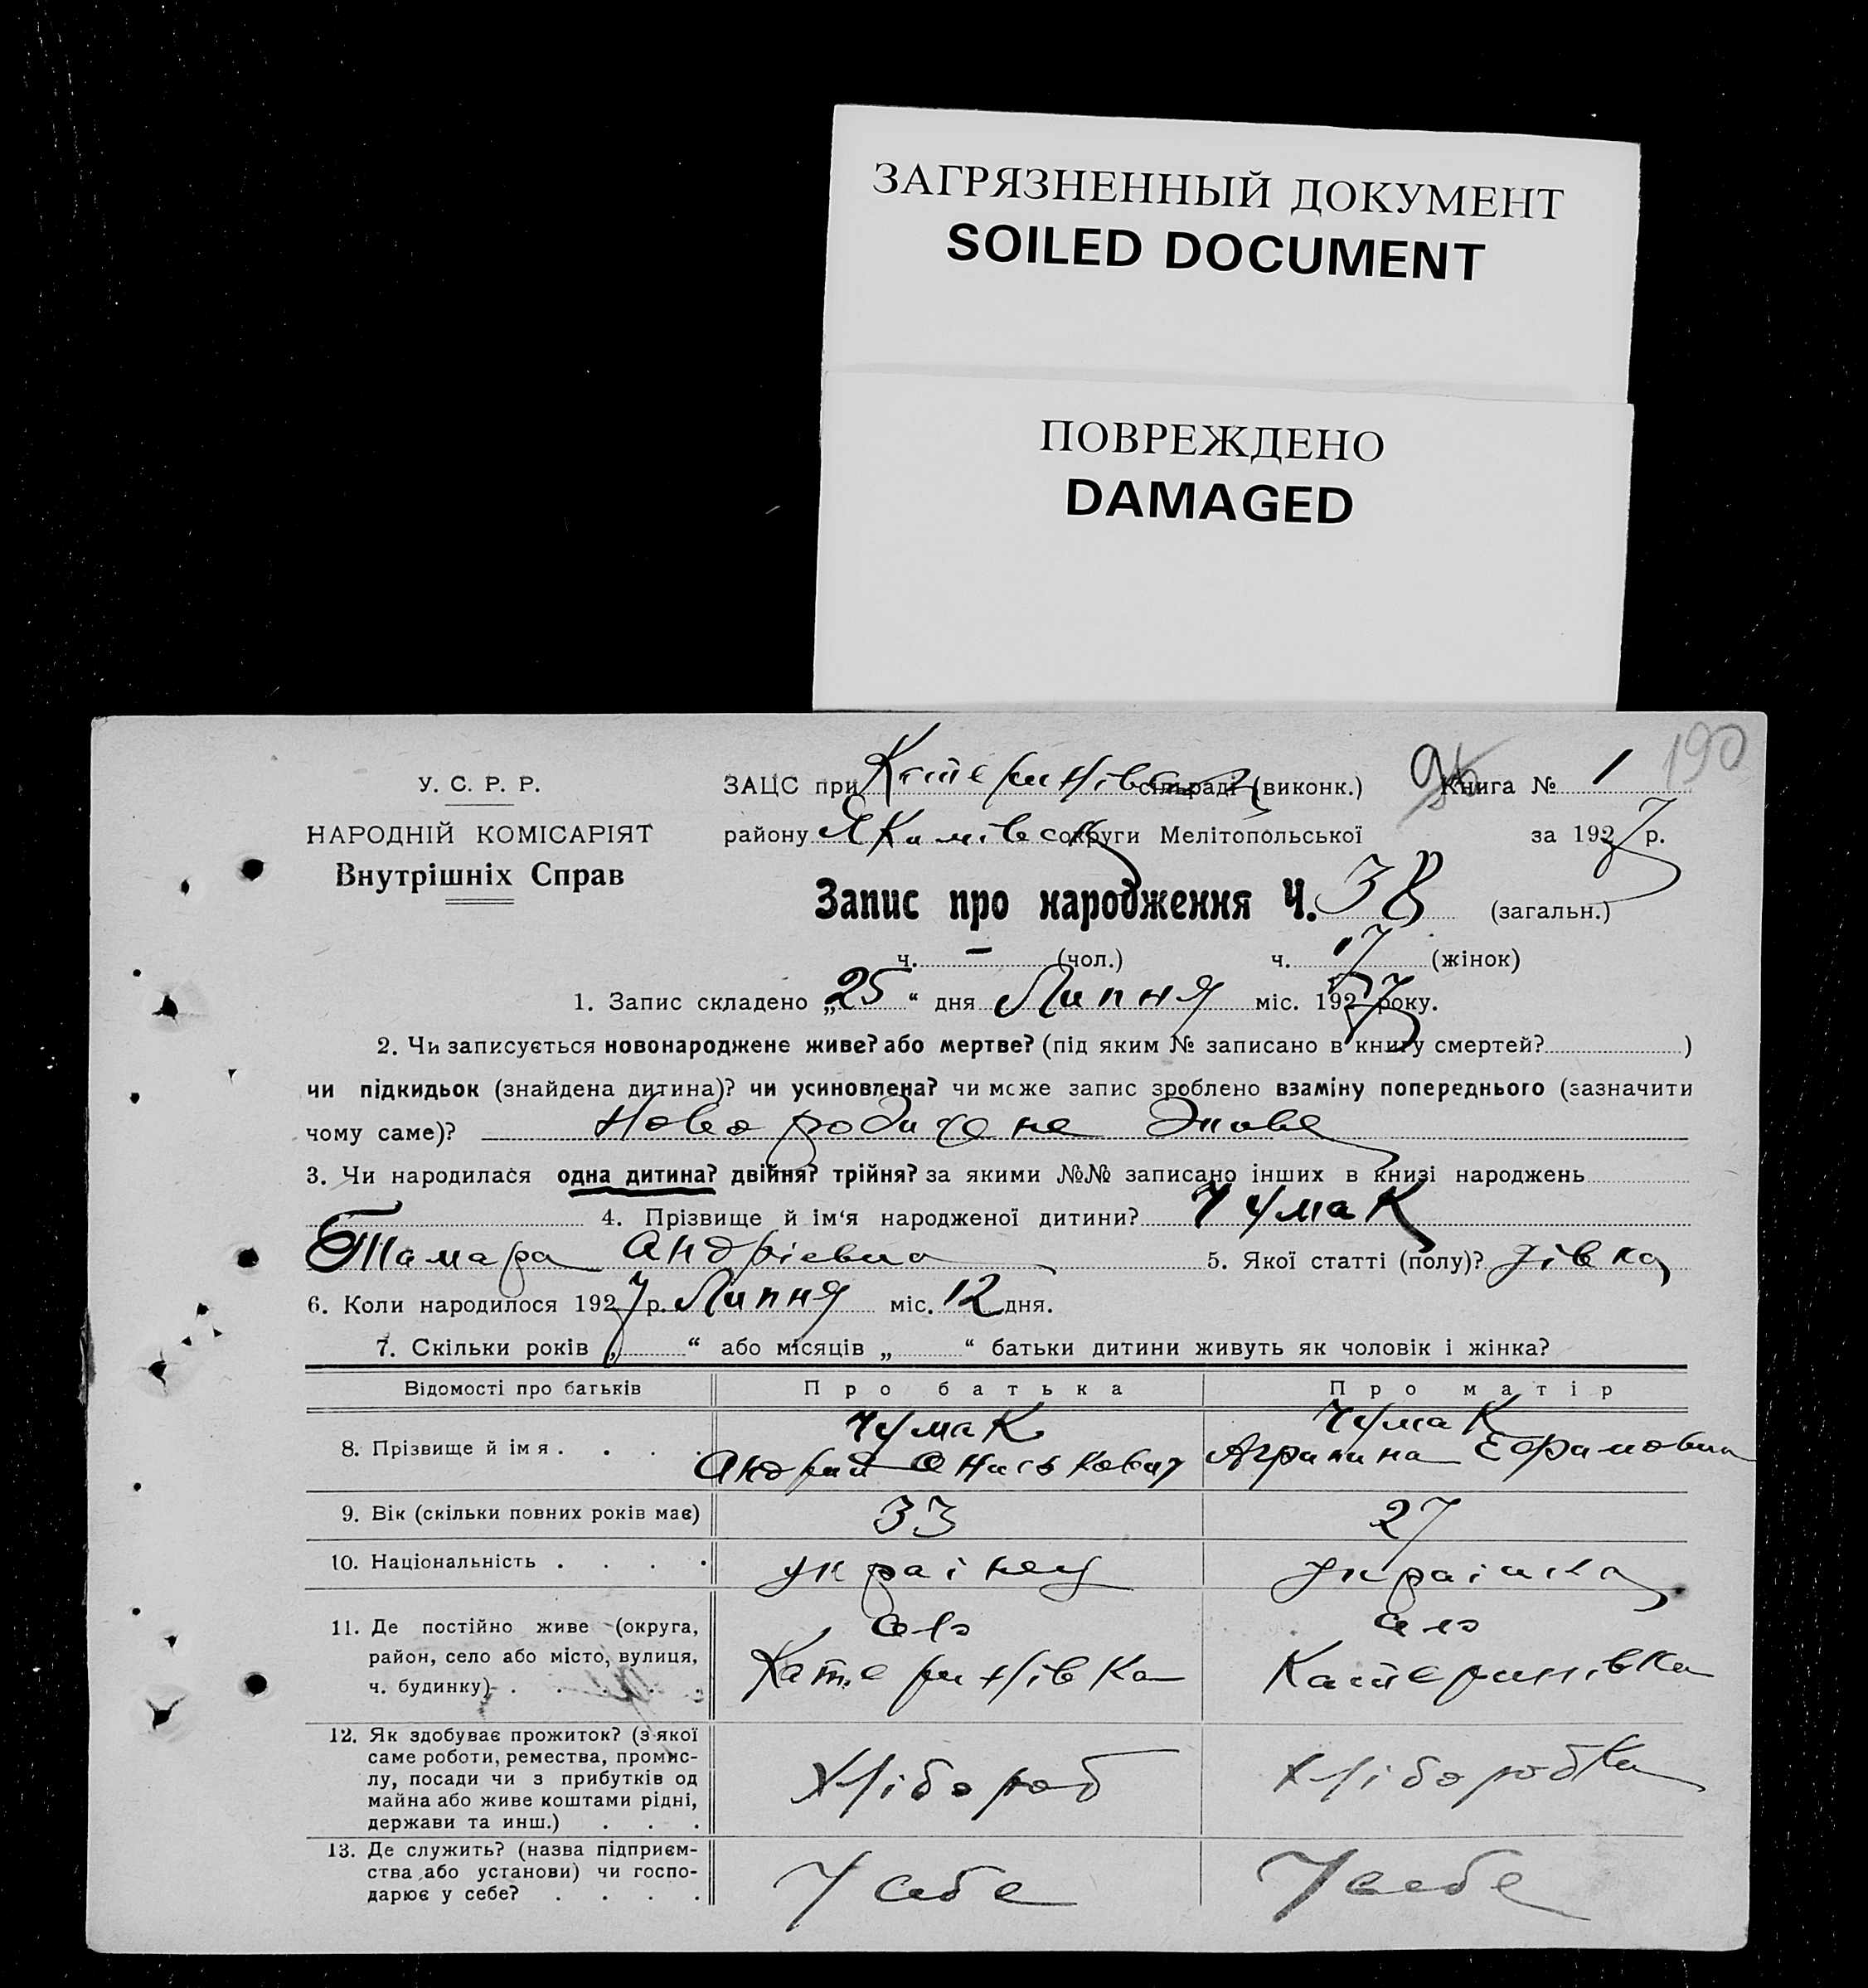 ЗАГРЯЗНЕННЫЙ ДОКУМЕНТ
SOILED DOCUMENT
ПОВРЕЖДЕНО
DAMAGED
190
У. С. Р. Р.
НАРОДНІЙ КОМІСАРІЯТ
Внутрішніх Справ
ЗАЦС при Катеринівській сільраді (виконк.) Книга № 1
району Якимівськ округи Мелітопольської за 1927 р.
Запис про народження Ч. 38 (загальн.)
ч. – (чол.) ч. 17 (жінок)
1. Запис складено „25“ дня Липня міс. 1927 року.
2. Чи записується новонароджене живе? або мертве? (під яким № записано в книгу смертей? )
чи підкидьок (знайдена дитина)? чи усиновлена? чи може запис зроблено взаміну попереднього (зазначити
чому саме)? Живе
3. Чи народилася одна дитина? двійня? трійня? за якими №№ записано інших в книзі народжень
4. Прізвище й ім‘я народженої дитини? Чумак
Тамара Андріевна 5. Якої статті (полу)? дівка
6. Коли народилося 1927 р. Липня міс. 12 дня.
7. Скільки років „ “ або місяців „ “ батьки дитини живуть як чоловік і жінка?
Відомості про батьків Про батька Про матір
8. Прізвище й імя . . . . Чумак Чумак
Андрий Онаськович Агрипина Ефримовна
9. Вік (скільки повних років має) 33 27
10. Національність . . . . українец українка
11. Де постійно живе (округа, село село
район, село або місто, вулиця, Катеринівка Катеринівка
ч. будинку) . . . .
12. Як здобуває прожиток? (з якої
саме роботи, ремества, промис-
лу, посади чи з прибутків од Хлібороб Хліборобка
майна або живе коштами рідні,
держави та инш.) . . .
13. Де служить? (назва підприєм-
ства або установи) чи госпо- У себе У себе
дарює у себе? . . . .